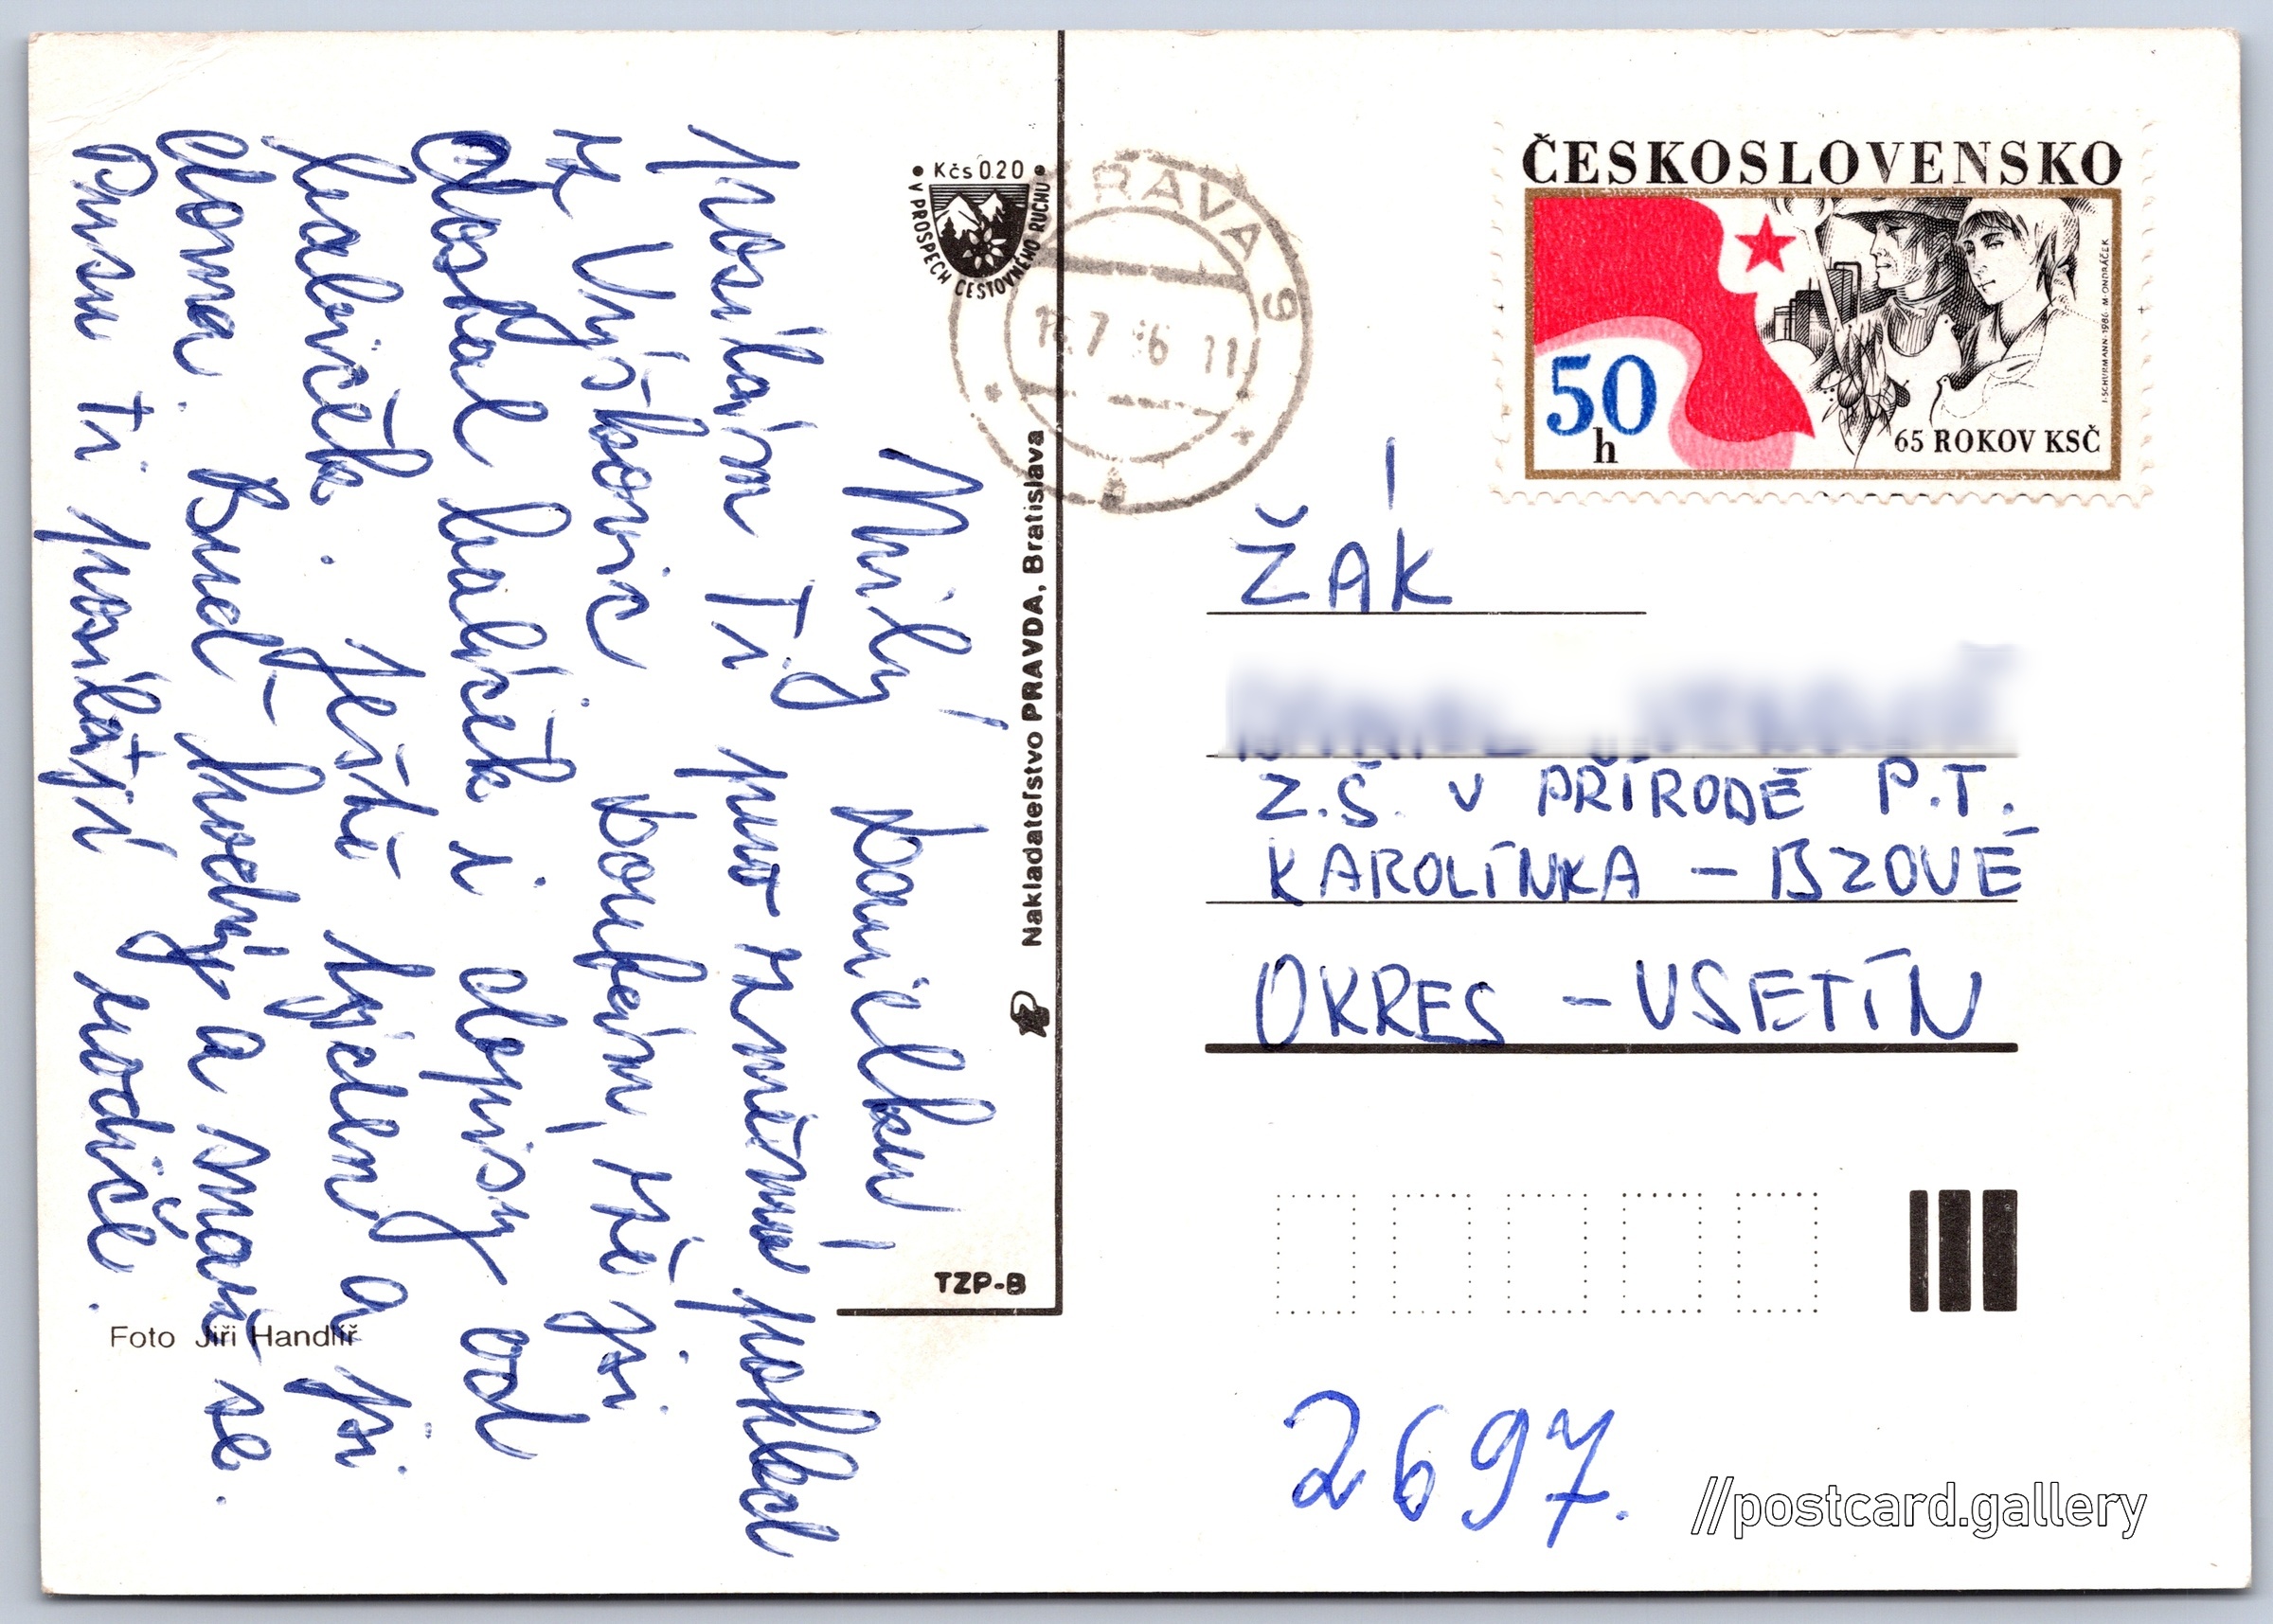 Milý Danielku!
posílám Ti pro změnu pohled
z Vyškovic. Doufám, že jsi
dostal balíček i dopisy od
babiček. Ještě týden a jsi
doma. Buď hodný a měj se.
Pusu ti posílají rodiče.
Kčs 0.20
V PROSPECH CESTOVNÉHO RUCHU
Nakladateľstvo PRAVDA, Bratislava
TZP-B
Foto Jiří Handlíř
RAVA 9
7 11
ČESKOSLOVENSKO
50 h
65 ROKOV KSČ
I. SCHURMANN-1986-M. ONDRÁČEK
ŽÁK
Z.Š. V PŘÍRODĚ P.T.
KAROLÍNKA - BZOVÉ
OKRES - VSETÍN
2697.
//postcard.gallery